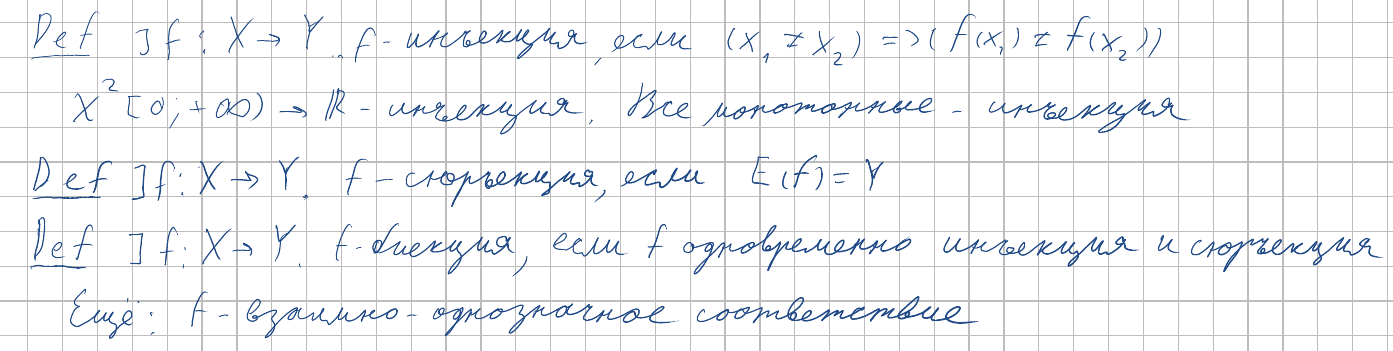 Def ] f: X → Y. f - инъекция, если (x₁ ≠ x₂) => (f(x₁) ≠ f(x₂))
x² [0; +∞) → ℝ - инъекция. Все монотонные - инъекция
Def ] f: X → Y. f - сюръекция, если E(f) = Y
Def ] f: X → Y. f - биекция, если f одновременно инъекция и сюръекция
Ещё: f - взаимно-однозначное соответствие